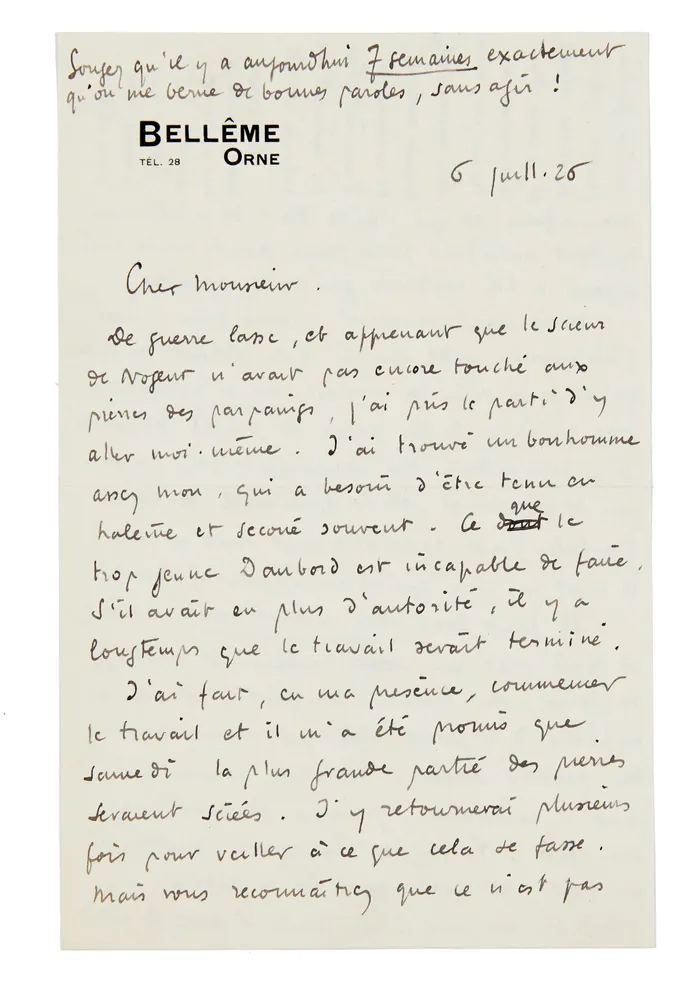 Songez qu'il y a aujourdhui 7 semaines exactement
qu'on me berne de bonnes paroles, sans agir !
BELLÊME
TÉL. 28 ORNE
6 juill. 26
Cher Monsieur.
De guerre lasse, et apprenant que le scieur
de Nogent n'avait pas encore touché aux
pierres des parpaings, j'ai pris le parti d'y
aller moi-même. J'ai trouvé un bonhomme
assez mou, qui a besoin d'être tenu en
haleine et secoué souvent. Ce que le
trop jeune Daubord est incapable de faire.
S'il avait eu plus d'autorité, il y a
longtemps que le travail serait terminé.
J'ai fait, en ma présence, commencer
le travail et il m'a été promis que
samedi la plus grande partie des pierres
seraient sciées. J'y retournerai plusieurs
fois pour veiller à ce que cela se fasse.
Mais vous reconnaîtrez que ce n'est pas